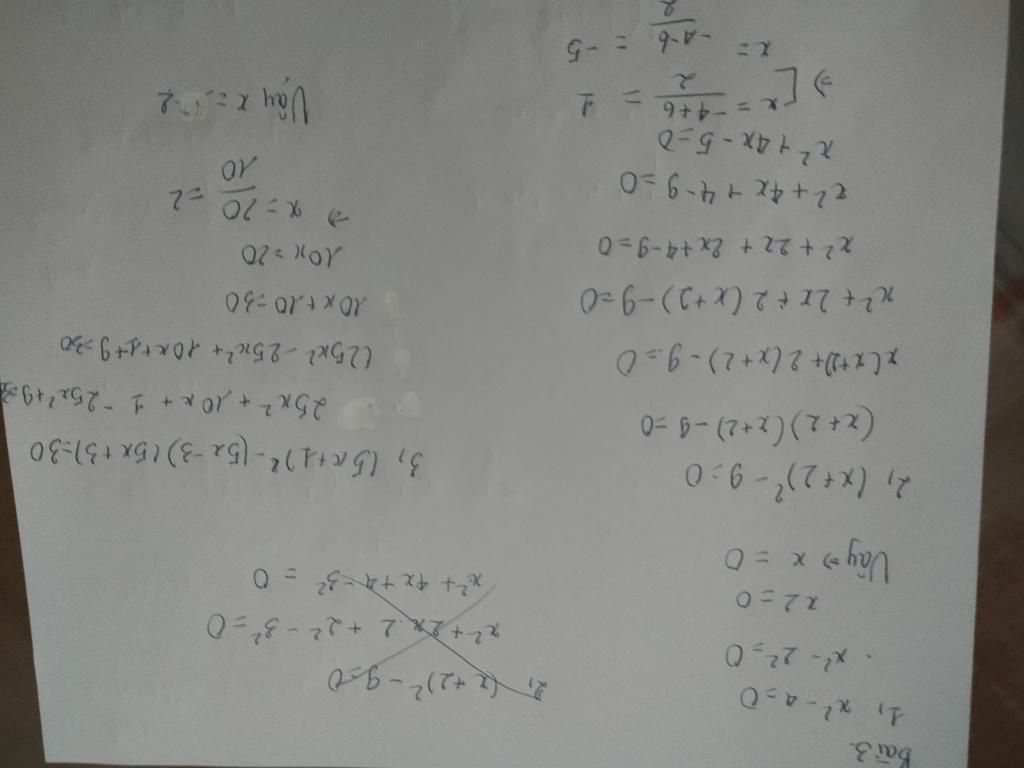 Bài 3
1, x² - 4 = 0
x² - 2² = 0
x2 = 0
Vậy => x = 0
2, (x+2)² - 9 = 0
(x+2)(x+2) - 9 = 0
x(x+2) + 2(x+2) - 9 = 0
x² + 2x + 2(x+2) - 9 = 0
x² + 2x + 2x + 4 - 9 = 0
x² + 4x + 4 - 9 = 0
x² + 4x - 5 = 0
=> [ x = \frac{-4+6}{2} = 1
x = \frac{-4-6}{2} = -5
2, (x+2)² - 9 = 0
x² + 2x.2 + 2² - 3² = 0
x² + 4x + 4 - 3² = 0
3, (5x+1)² - (5x-3)(5x+3) = 30
25x² + 10x + 1 - 25x² + 9 =
(25x² - 25x² + 10x + 1 + 9 = 30
10x + 10 = 30
10x = 20
=> x = \frac{20}{10} = 2
Vậy x = 2